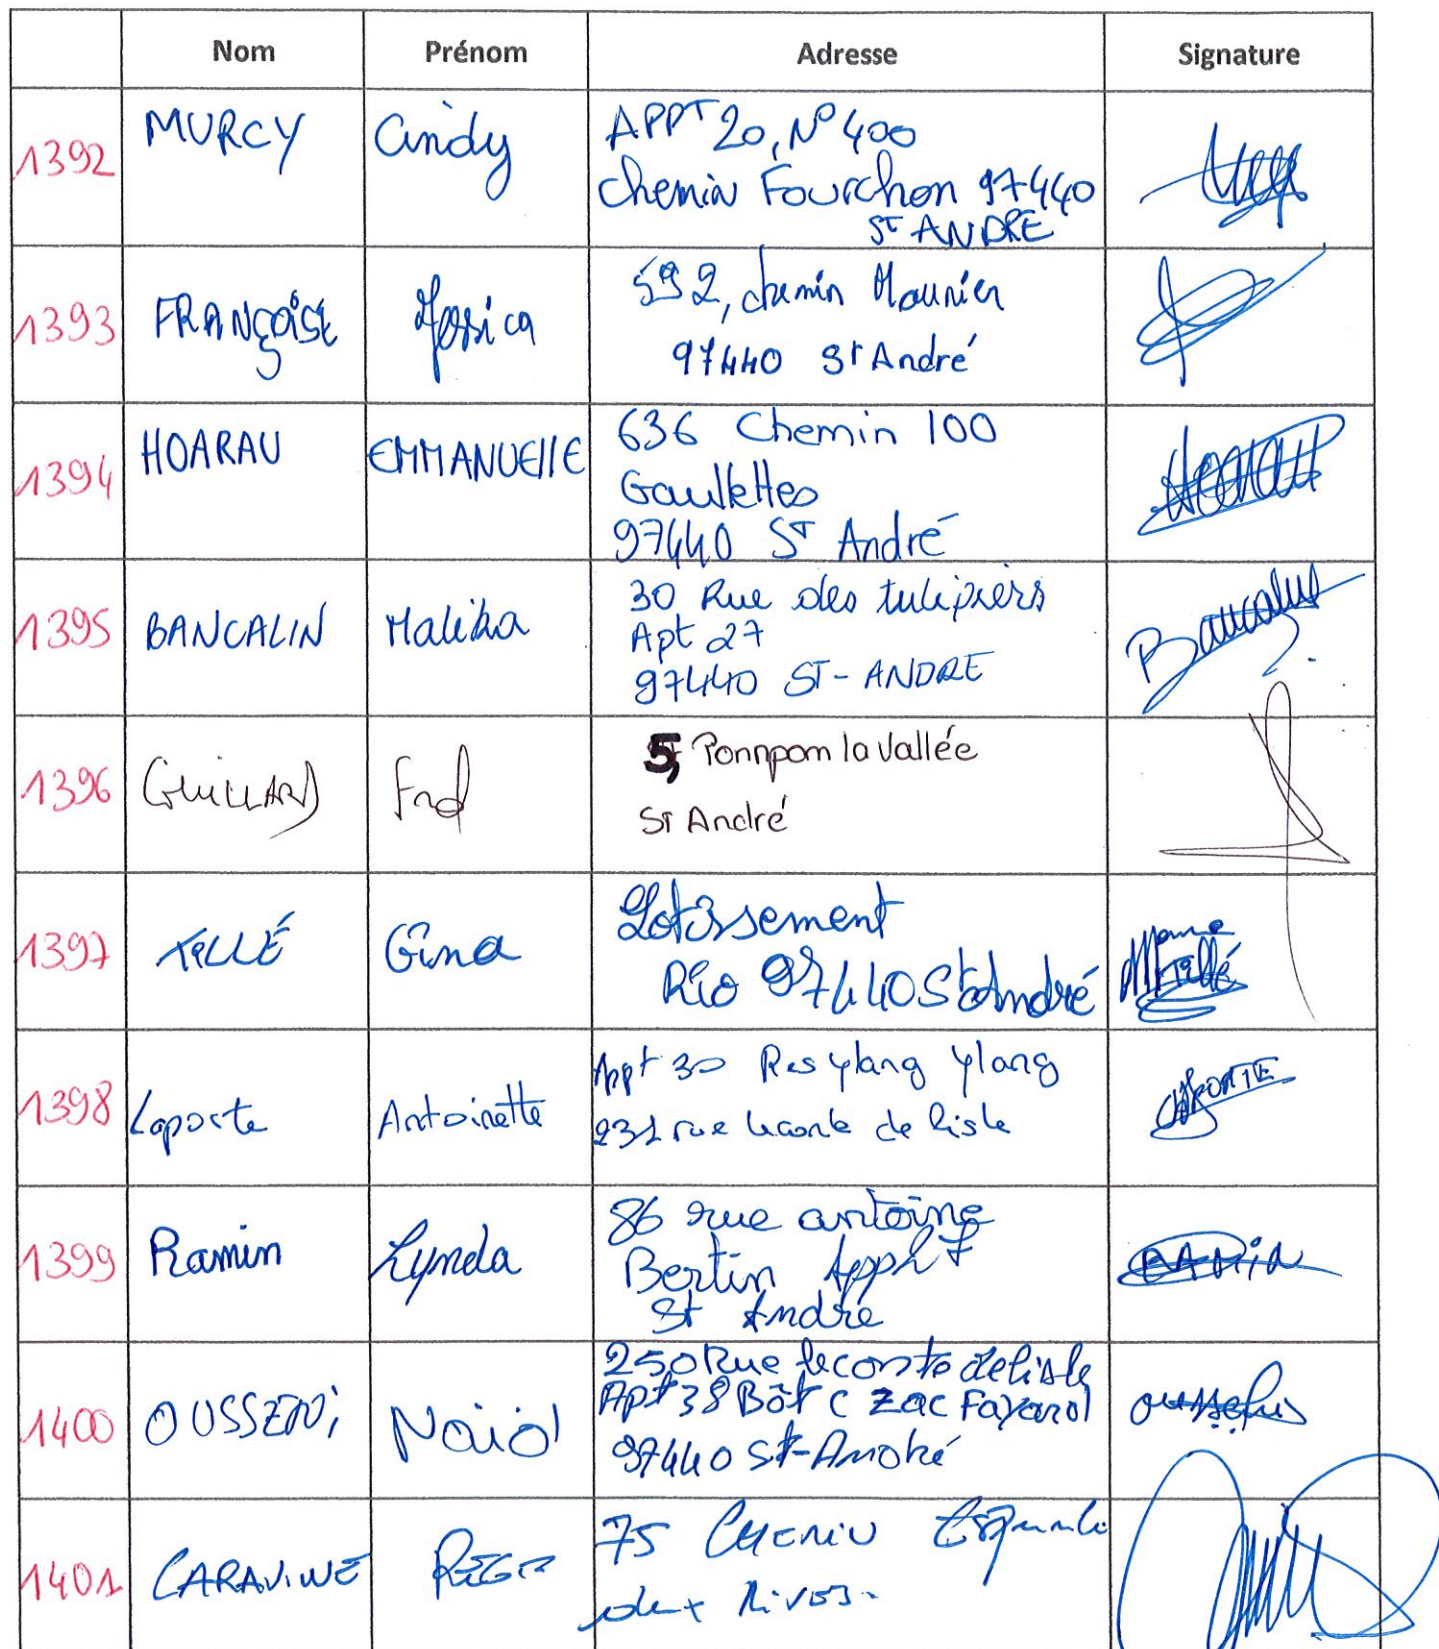 Nom Prénom Adresse Signature
1392 MURCY Cindy APPT 20, N° 400
Chemin Fourchon 97440
ST ANDRE
1393 FRANÇOISE Jessica 592, chemin Maunier
97440 St André
1394 HOARAU EMMANUEllE 636 Chemin 100
Gaulettes
97440 ST André
1395 BANCALIN Malika 30 Rue des tulipiers
Apt 27
97440 ST-ANDRE
Bancalin
1396 GUILLARD Fred 5, Ponnpom la Vallée
St André
1397 TILLÉ Gina Lotissement
Rio 97440 St André
1398 Laporte Antoinette Appt 30 Res ylang ylang
231 rue leconte de lisle
LAPORTE
1399 Ramin Lynda 86 rue antoine
Bertin Appt 7
St André
RAMIN
1400 OUSSENi Naiol 250 Rue leconte delisle
Apt 38 Bât C Zac Fayard
97440 St-André
ousseni
1401 CARAVINE REGIS 75 CHEMIN
deux Rives.